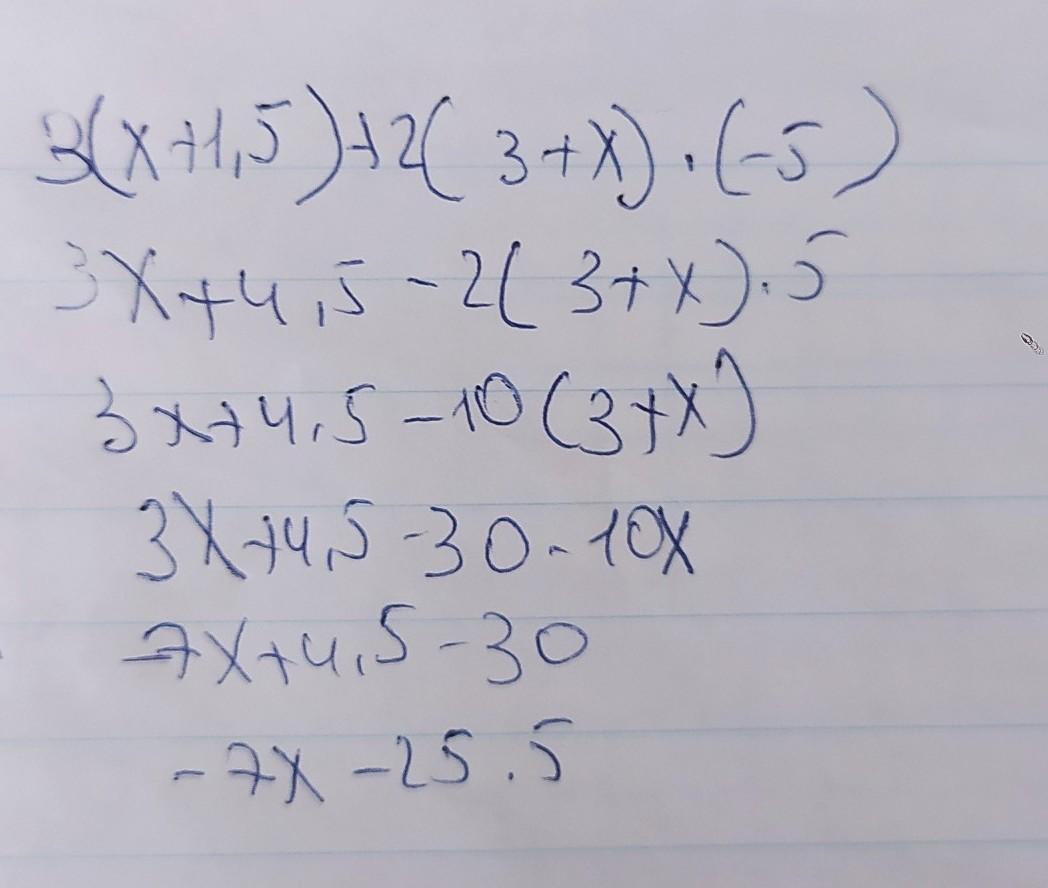 3(x+1,5)+2(3+x).(-5)
3x+4,5-2(3+x).5
3x+4,5-10(3+x)
3x+4,5-30-10x
-7x+4,5-30
-7x-25.5